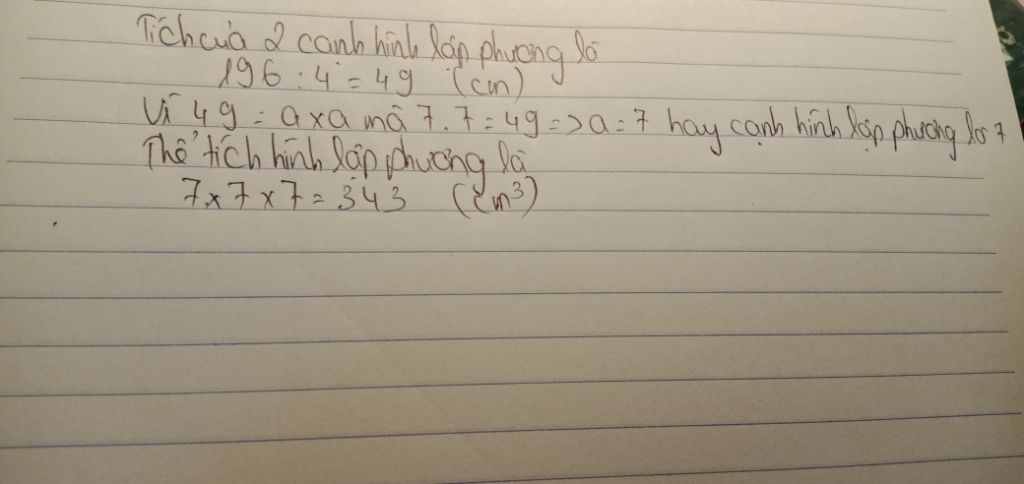 Tích của 2 cạnh hình lập phương là
196 : 4 = 49 (cm)
Vì 49 = a x a mà 7 . 7 = 49 => a = 7 hay cạnh hình lập phương là 7
Thể tích hình lập phương là
7 x 7 x 7 = 343 (cm³)